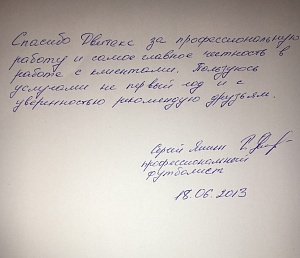 Спасибо Двитекс за профессиональную
работу и самое главное честность в
работе с клиентами. Пользуюсь
услугами не первый год и с
уверенностью рекомендую друзьям.
Сергей
профессиональный
футболист
18.06.2013